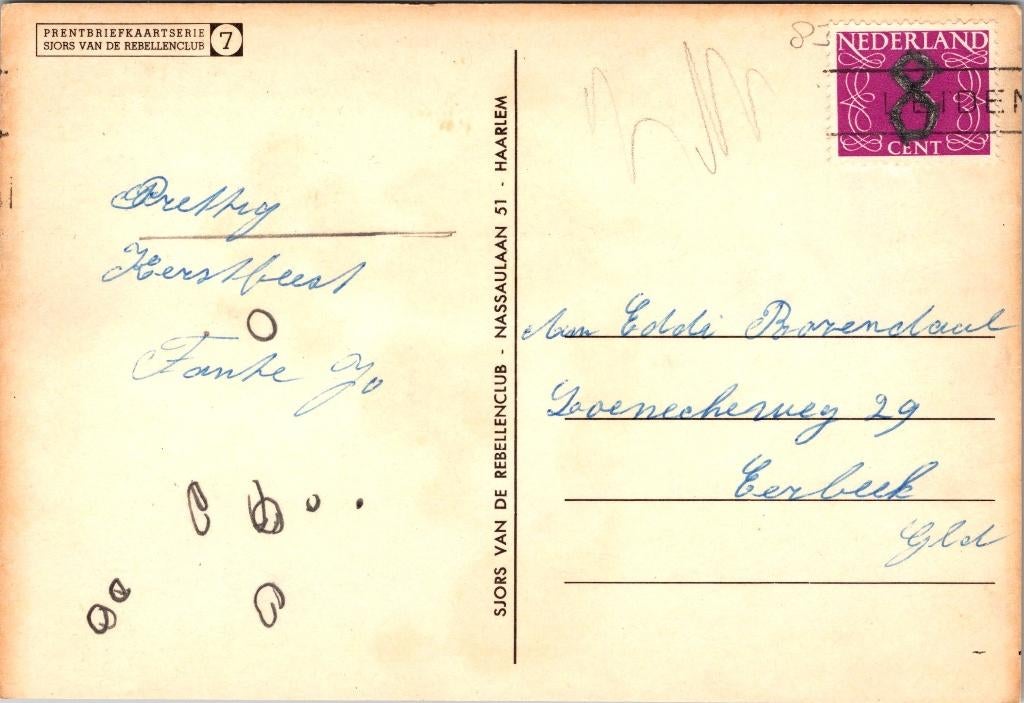 PRENTBRIEFKAARTSERIE
SJORS VAN DE REBELLENCLUB 7
Prettig
Kerstfeest
Tante Jo
SJORS VAN DE REBELLENCLUB - NASSAULAAN 51 - HAARLEM
NEDERLAND
8
CENT
LEIDEN
Aan Eddi Rozendaal
Loenenscheweg 29
Eerbeek
Gld